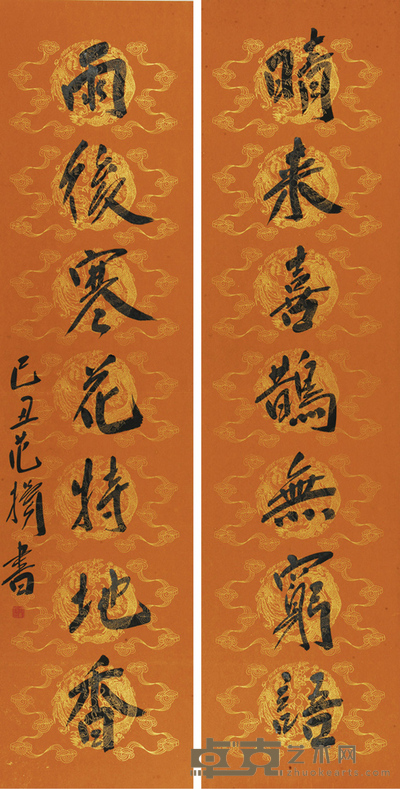 晴来喜鵲無窮語
雨後寒花特地香
己丑范揚書
卓克艺术网